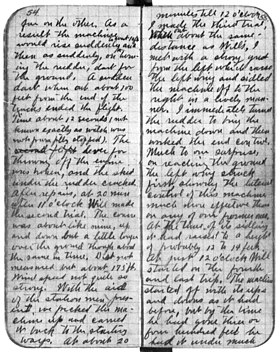 54
far on the other. As a
result the machine would
rise suddenly and
then as suddenly, on turn-
ing the rudder, dart for
the ground. A sudden
dart when out about 100
feet from the end of the
tracks ended the flight.
Time about 12 seconds (not
known exactly as watch was
not promptly stopped). The
lever for
throwing off the engine
was broken, and the skid
under the rudder cracked.
After repairs, at 20 min.
after 11 o'clock Will made
the second trial. The course
was about like mine, up
and down but a little longer
over the ground though about
the same in time. Dist not
measured but about 175 ft.
Wind speed not quite so
strong. With the aid
of the station men pres-
ent, we picked the ma-
chine up and carried
it back to the starting
ways. At about 20
minutes till 12 o'clock
I made the third trial.
When out about the same
distance as Will's, I
met with a strong gust
from the left which raised
the left wing and sidled
the machine off to the
right in a lively man-
ner. I immediately turned
the rudder to bring the
machine down and then
worked the end control.
Much to our surprise
on reaching the ground
the left wing struck
first, showing the lateral
control of this machine
much more effective than
on any of our former ones.
At the time of its sidling
it had raised to a height
of probably 12 to 14 feet.
At just 12 o'clock Will
started on the fourth
and last trip. The machine
started off with its ups
and downs as it had
before, but by the time
he had gone three or
four hundred feet he
had it under much